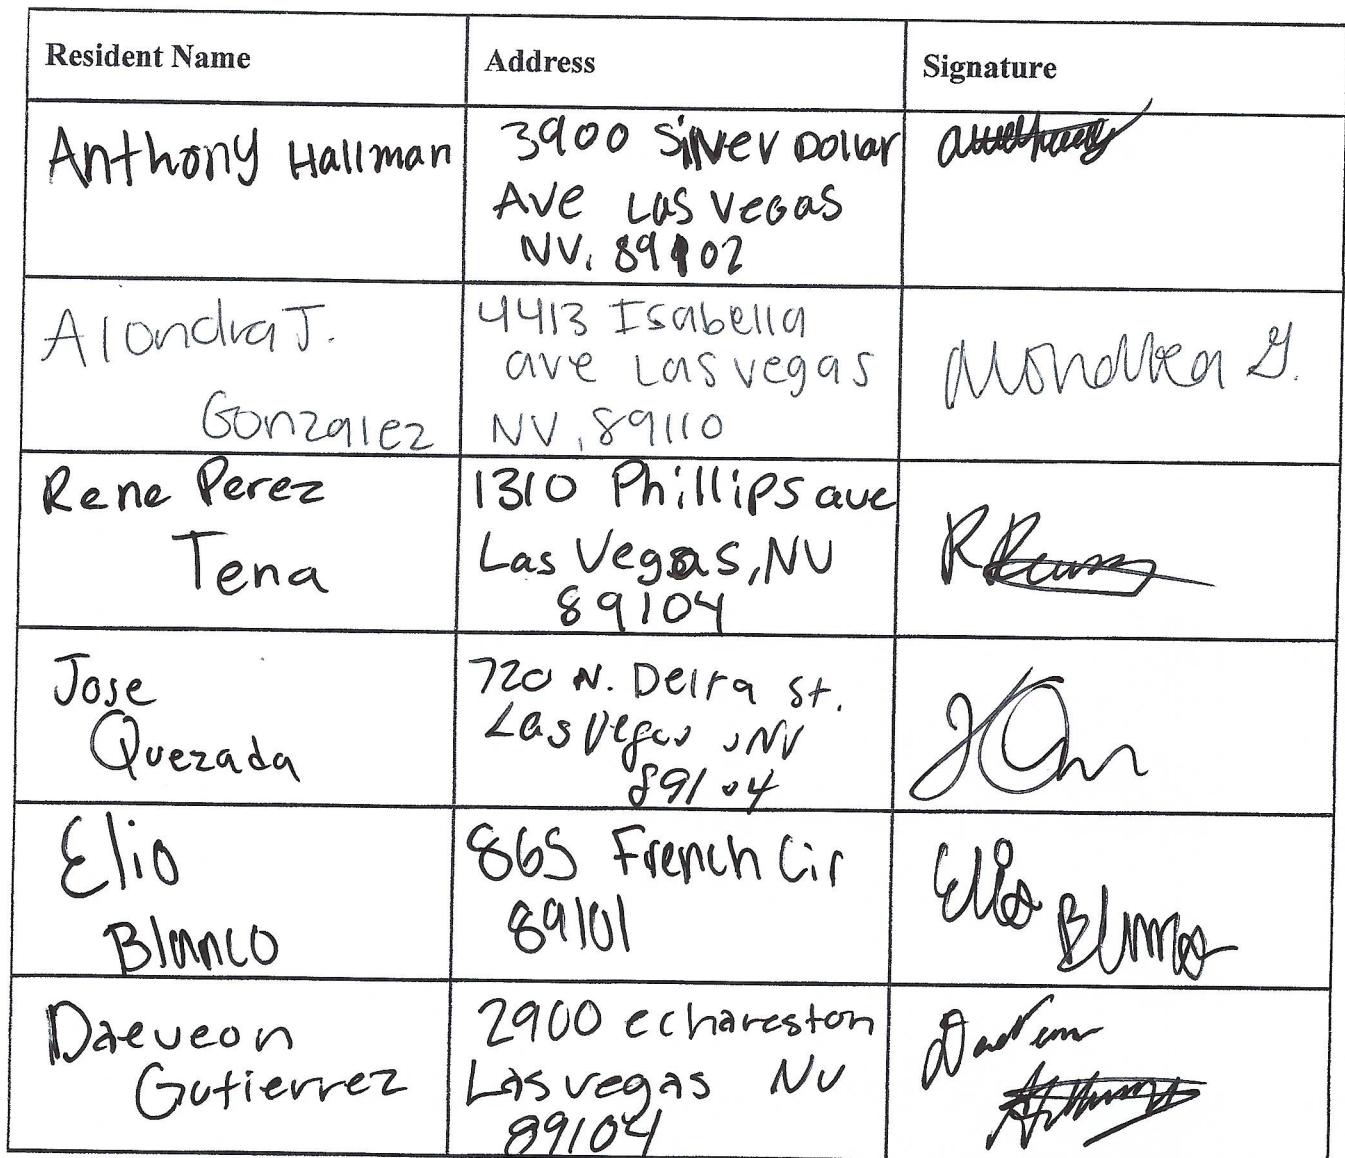 Resident Name
Address
Signature
Anthony Hallman
3900 Silver Dollar
Ave Las Vegas
NV, 89102
Alondra J.
Gonzalez
4413 Isabella
ave Las vegas
NV, 89110
Alondra G.
Rene Perez
Tena
1310 Phillips ave
Las Vegas, NV
89104
Jose
Quezada
720 N. Delta St.
Las Vegas, NV
89104
Elio
Blanco
865 French Cir
89101
Elio
Blanco
Daeveon
Gutierrez
2900 e chareston
Las vegas NV
89104